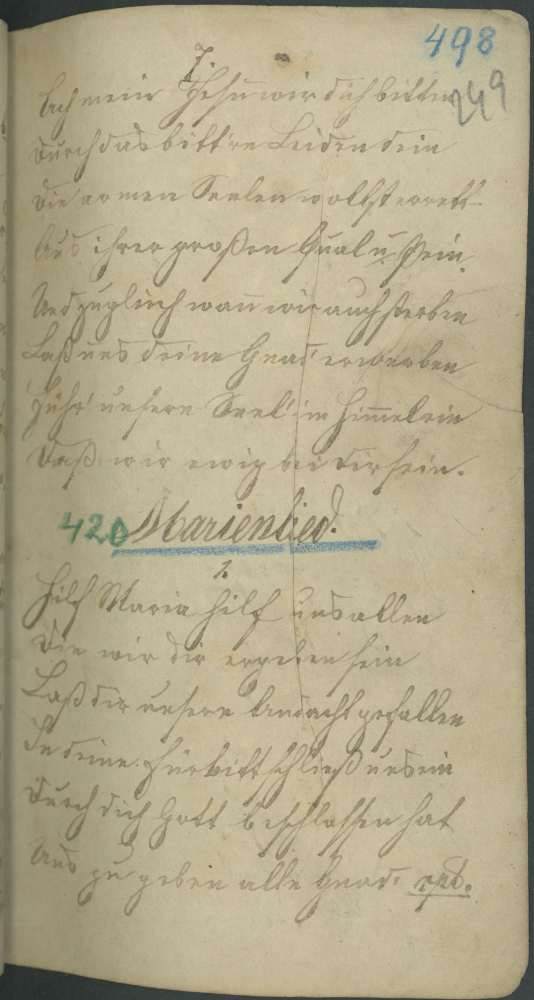 498
249
7.
Ach mein Jesu wir dich bitten
Durch das bitt're Leiden dein
Die armen Seelen wollst errett
Aus ihrer großen Qual u. Pein.
Und zugleich wañ wir auch sterben
Laß uns deine Gnad' erwerben
Führ' unsere Seel' im Him̄el ein
Daß wir ewig bei dir sein.
420 Marienlied.
1.
Hilf Maria hilf uns allen
Die wir dir ergeben sein
Laß dir unsere Andacht gefallen
In deine Fürbitt schließ uns ein
Durch dich Gott beschlossen hat
Uns zu geben alle Gnad.